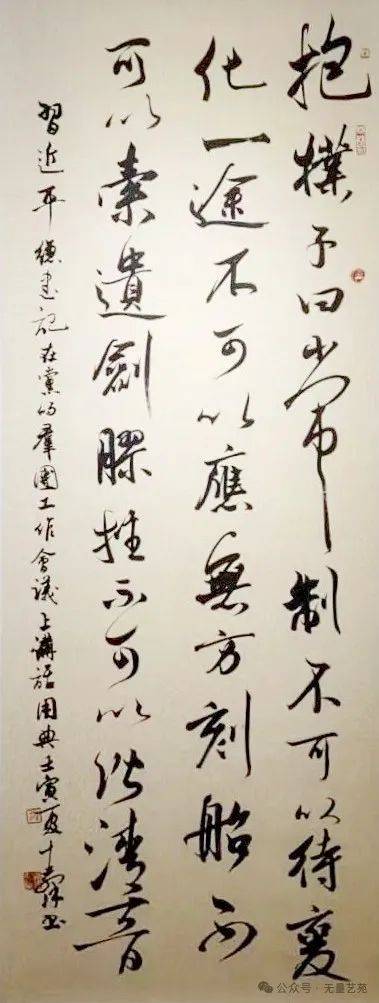 抱樸子曰常制不可以待變
化一途不可以應無方刻船不
可以索遺劍膠柱不可以諧清音
習近平總書記在黨的羣團工作會議上講話用典壬寅夏
公众号 · 无量艺苑